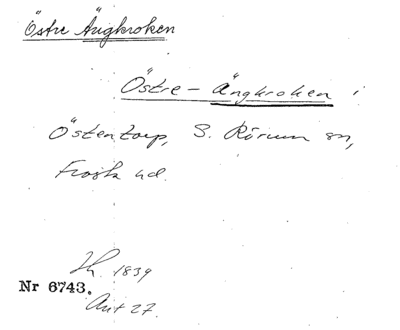 Östre Ängkroken
Östre - Ängkroken i
Östentorp, S. Rörum sn,
Frosta hd.
Lh. 1839
Nr 6743.
Akt 27.